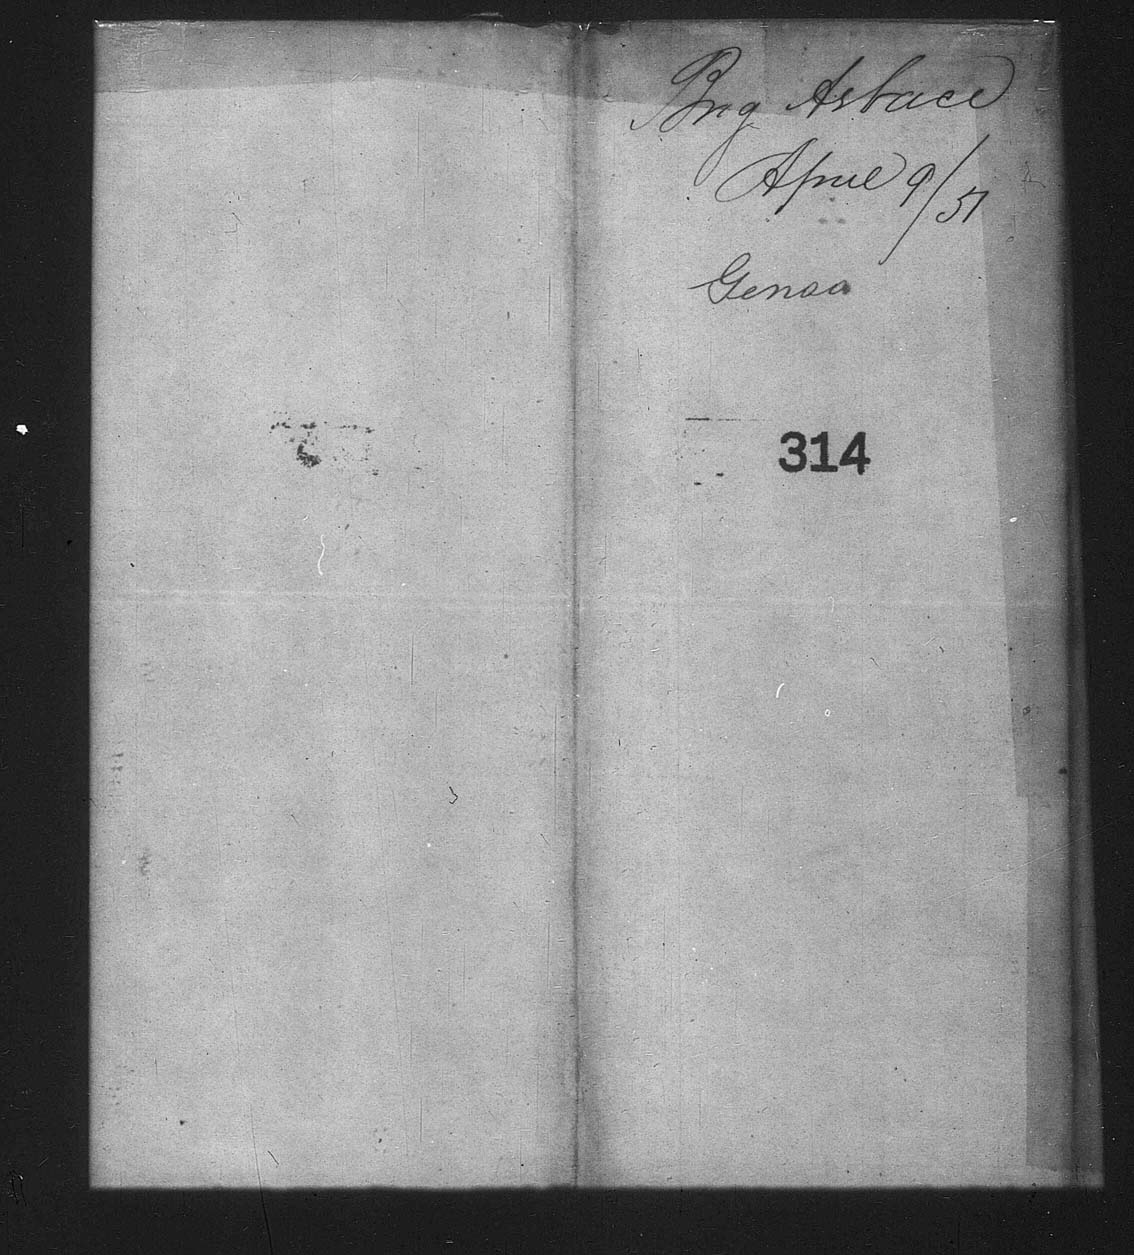 Brig Asbace
April 9/51
Genoa
314